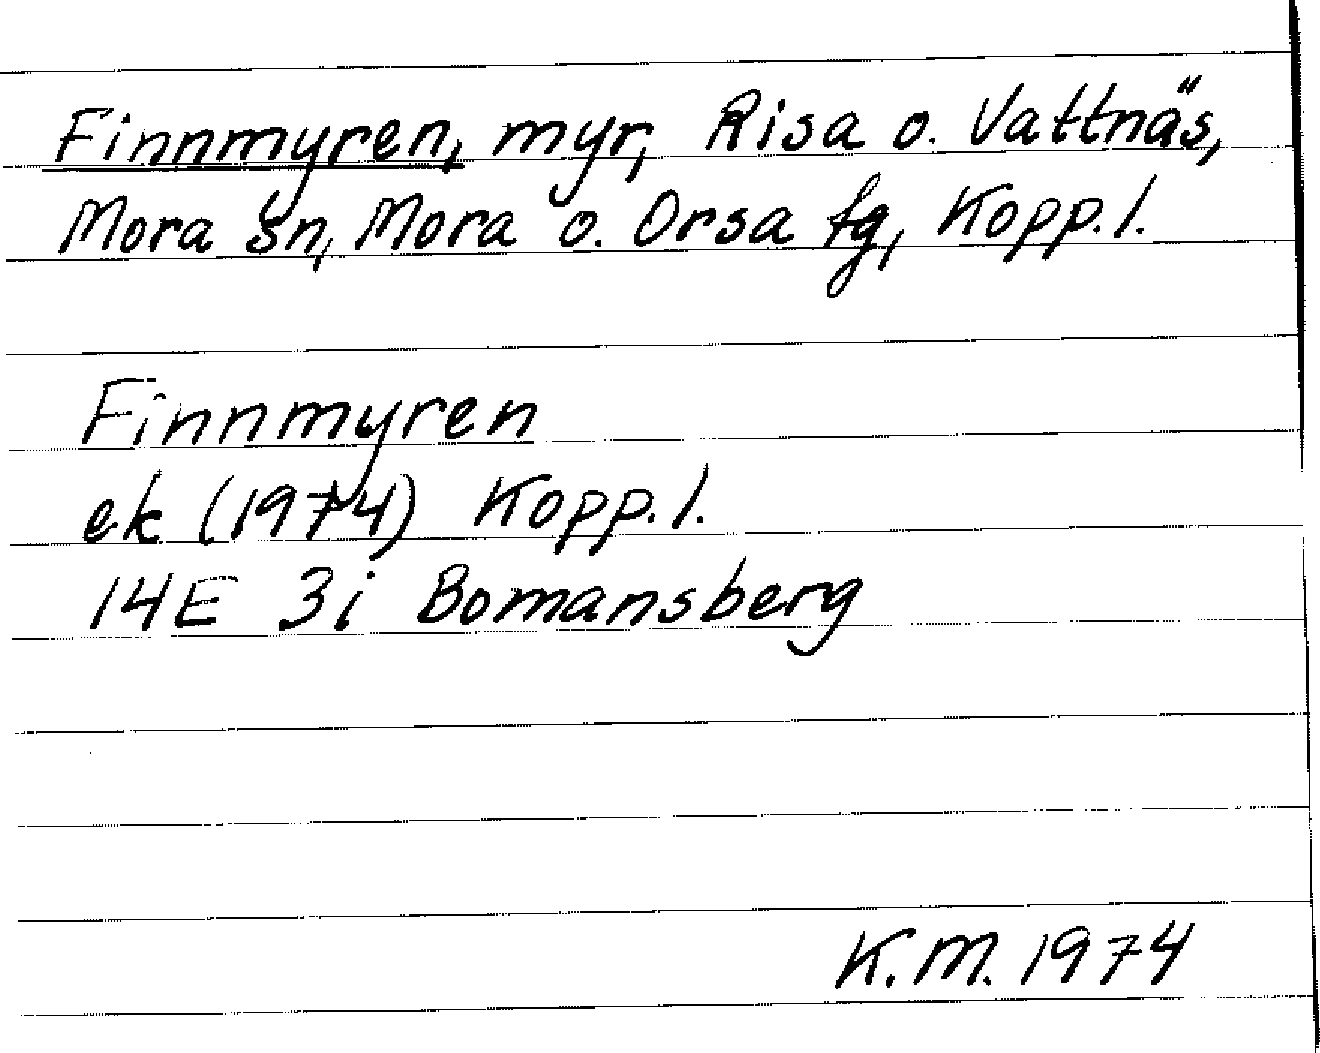 Finnmyren, myr, Risa o. Vattnäs,
Mora sn, Mora o. Orsa tg, Kopp. l.
Finnmyren
ek (1974) Kopp. l.
14E 3i Bomansberg
K.M. 1974